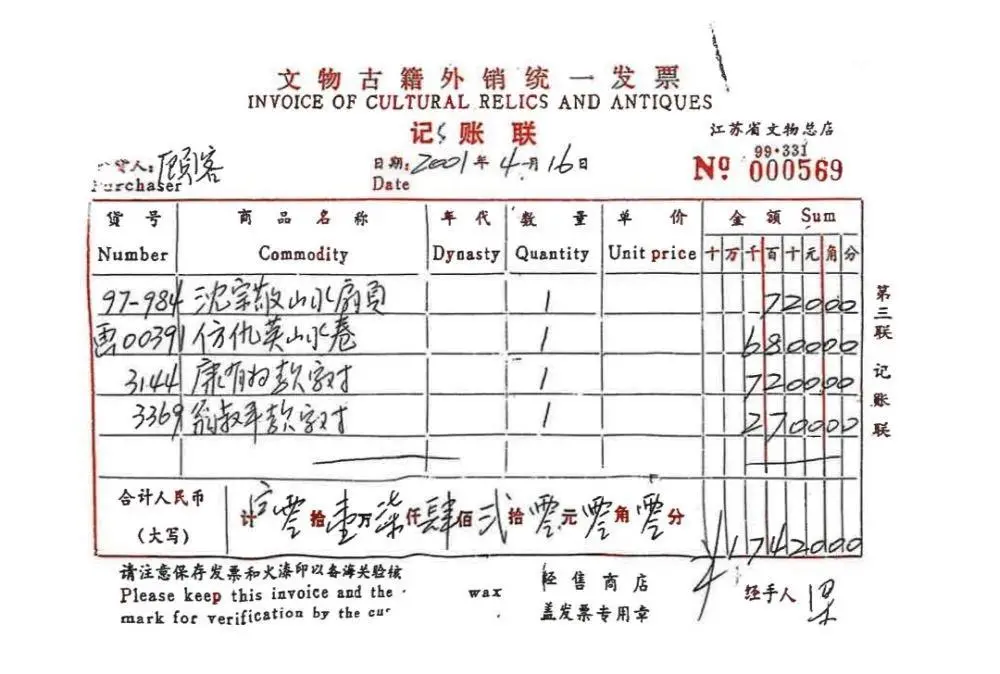 文物古籍外销统一发票
INVOICE OF CULTURAL RELICS AND ANTIQUES
记账联
江苏省文物总店
99·331
Nº 000569
货人: 顾客
Purchaser
日期: 2001年4月16日
Date
货号 商品名称 年代 数量 单价 金额 Sum
Number Commodity Dynasty Quantity Unit price 十万千百十元角分
97-984 沈宗敬山水扇页 1 72000
画00391 仿仇英山水卷 1 680000
3144 康有为款字对 1 720000
3369 翁叔平款字对 1 270000
合计人民币
(大写)
计 零拾壹万柒仟肆佰贰拾零元零角零分
¥1742000
第三联 记账联
请注意保存发票和火漆印以备海关验核
Please keep this invoice and the wax
mark for verification by the
经售商店
盖发票专用章
经手人